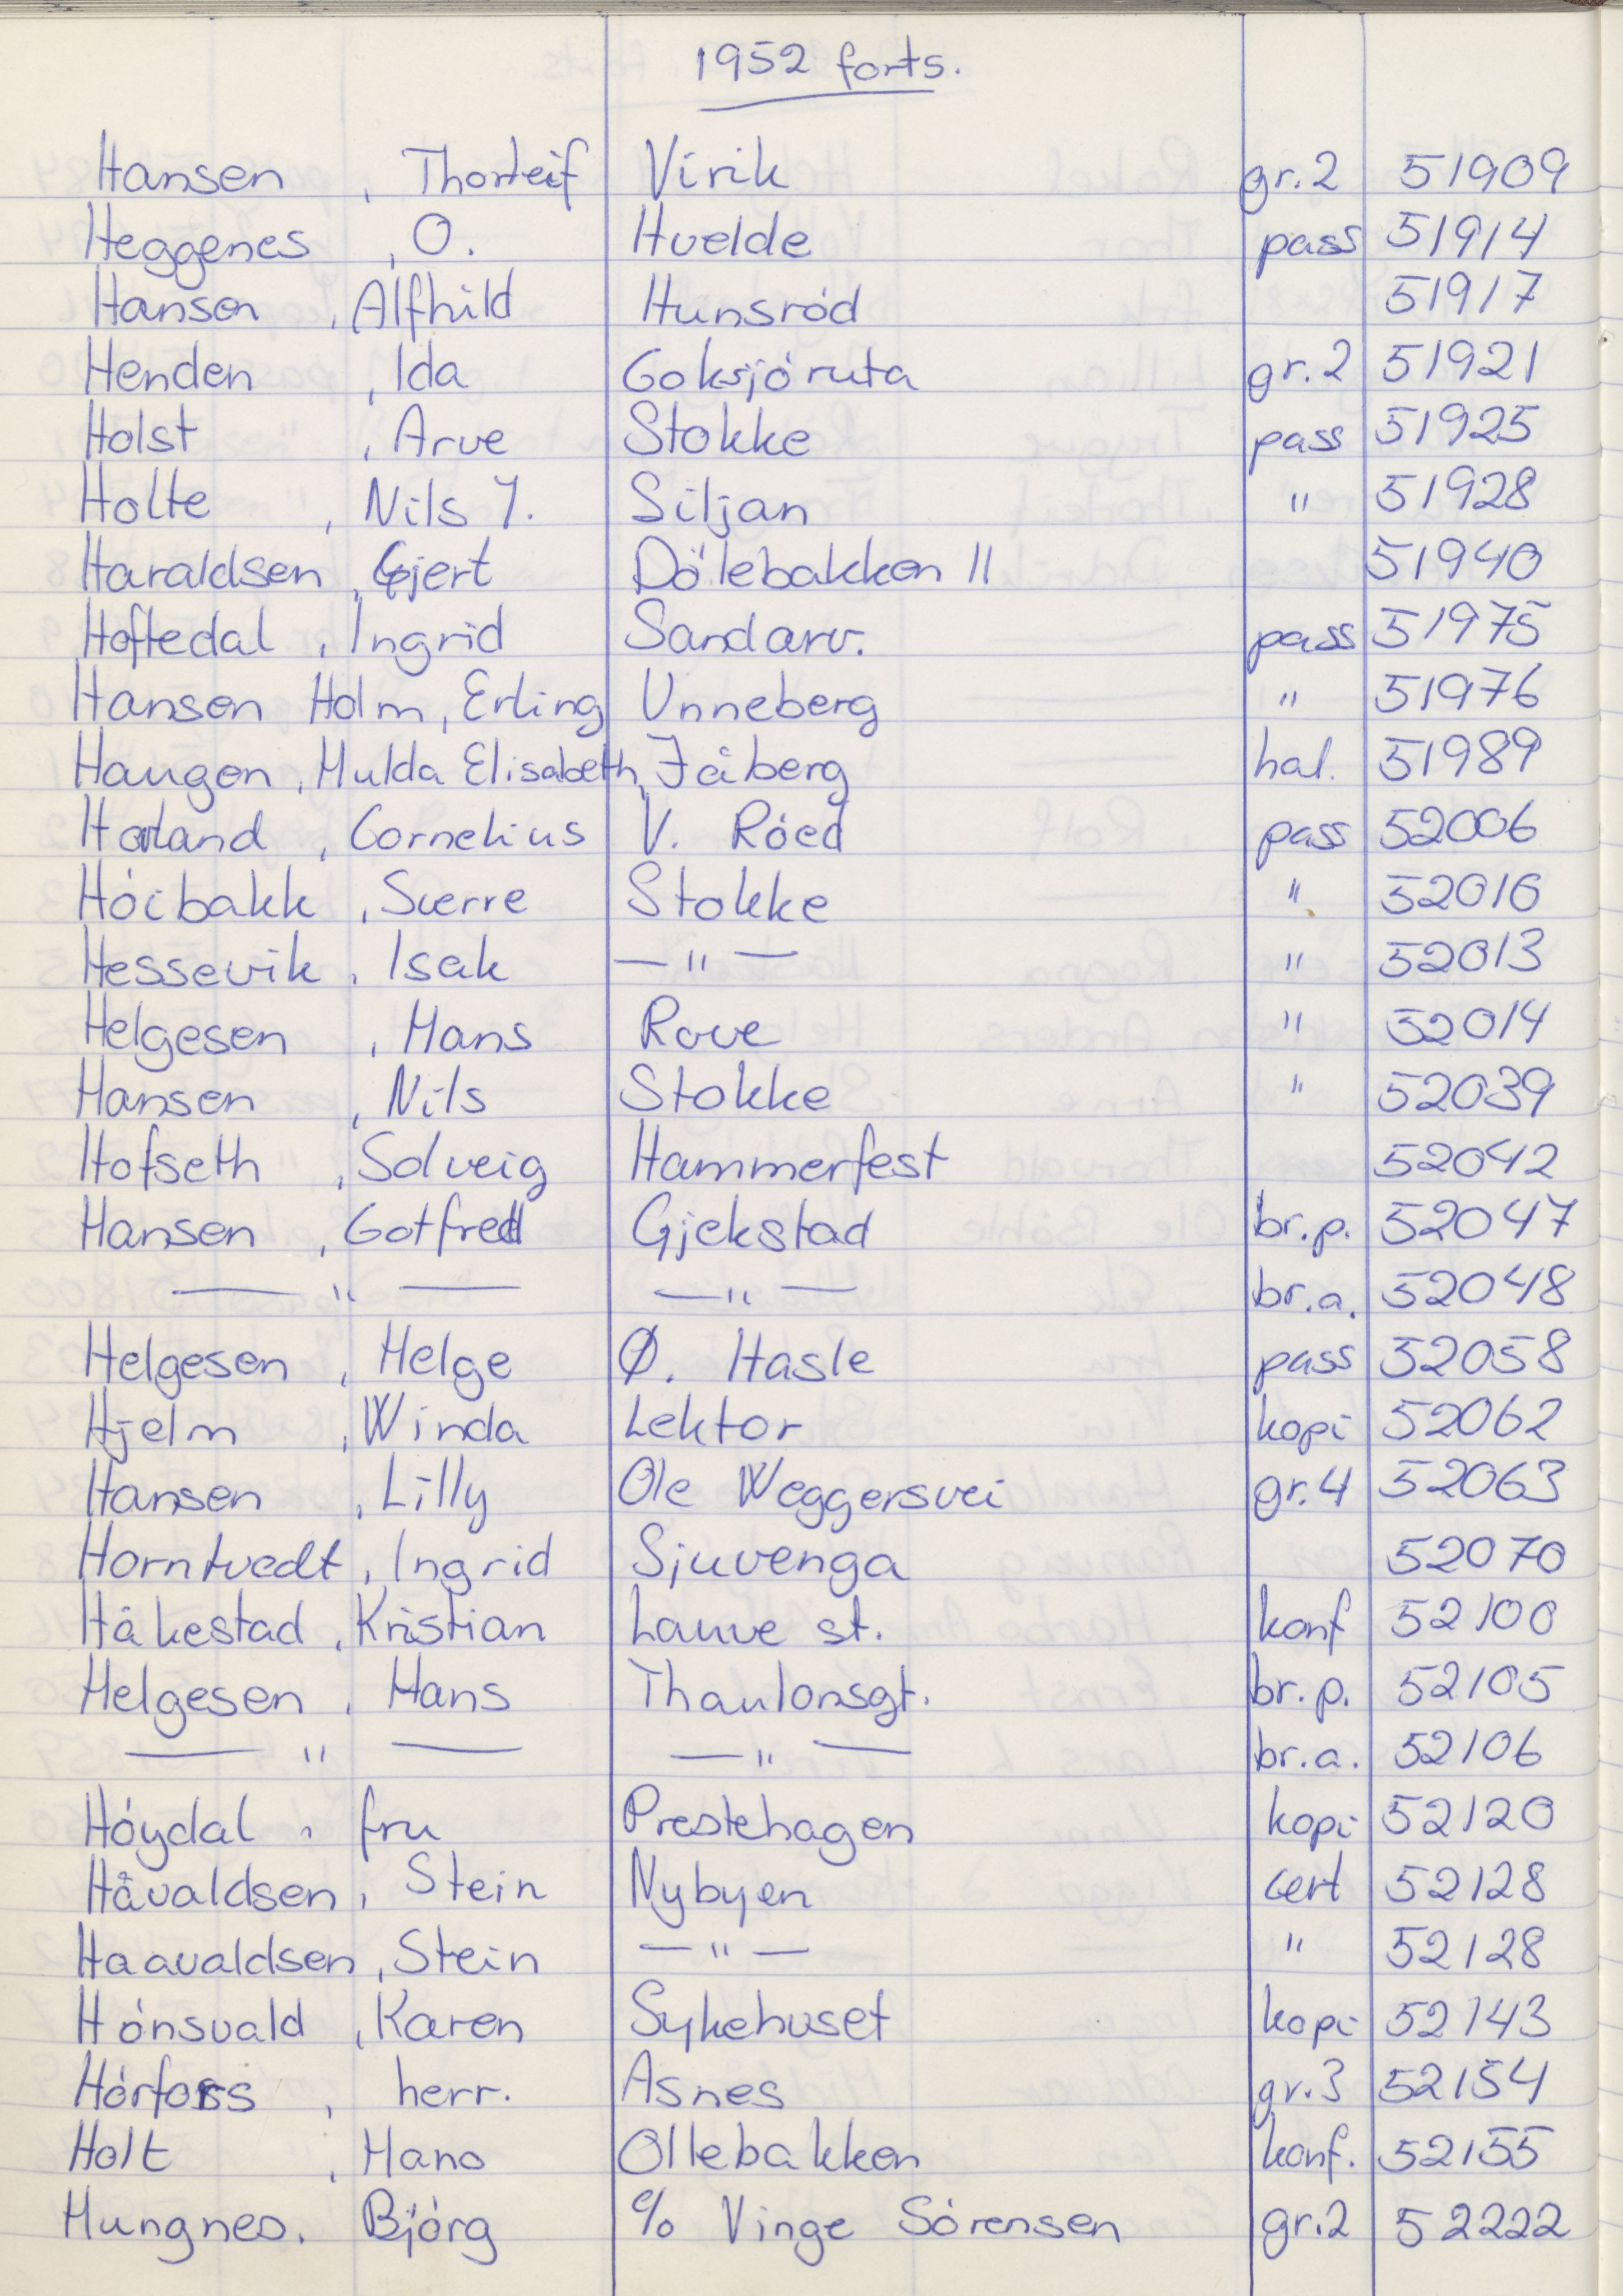 1952 forts.
Hansen , Thorleif Virik gr.2 51909
Heggenes , O. Hvelde pass 51914
Hansen , Alfhild Hunsród 51917
Henden , Ida Goksjóruta gr.2 51921
Holst , Arve Stokke pass 51925
Holte , Nils Y. Siljan " 51928
Haraldsen , Gjert Dölebakken 11 51940
Hoftedal , Ingrid Sandarv. pass 51975
Hansen Holm, Erling Unneberg " 51976
Haugen , Hulda Elisabeth, Jåberg hal. 51989
Havland , Cornelius V. Róed pass 52006
Hóibakk , Sverre Stokke " 52016
Hessevik , Isak —"— " 52013
Helgesen , Hans Rove " 52014
Hansen , Nils Stokke " 52039
Hofseth , Solveig Hammerfest 52042
Hansen , Gotfred Gjekstad br.p. 52047
—"— —"— br.a. 52048
Helgesen , Helge Ø. Hasle pass 52058
Hjelm , Winda Lektor kopi 52062
Hansen , Lilly Ole Weggersvei gr.4 52063
Horntvedt , Ingrid Sjuvenga 52070
Håkestad , Kristian Lauve st. konf 52100
Helgesen , Hans Thaulonsgt. br.p. 52105
—"— —"— br.a. 52106
Hóydal , fru Prestehagen kopi 52120
Håvaldsen , Stein Nybyen cert 52128
Haavaldsen , Stein —"— " 52128
Hónsvald , Karen Sykehuset kopi 52143
Hórfoss , herr. Asnes gr.3 52154
Holt , Hans Ollebakken konf. 52155
Hungnes. Bjórg % Vinge Sórensen gr.2 52222